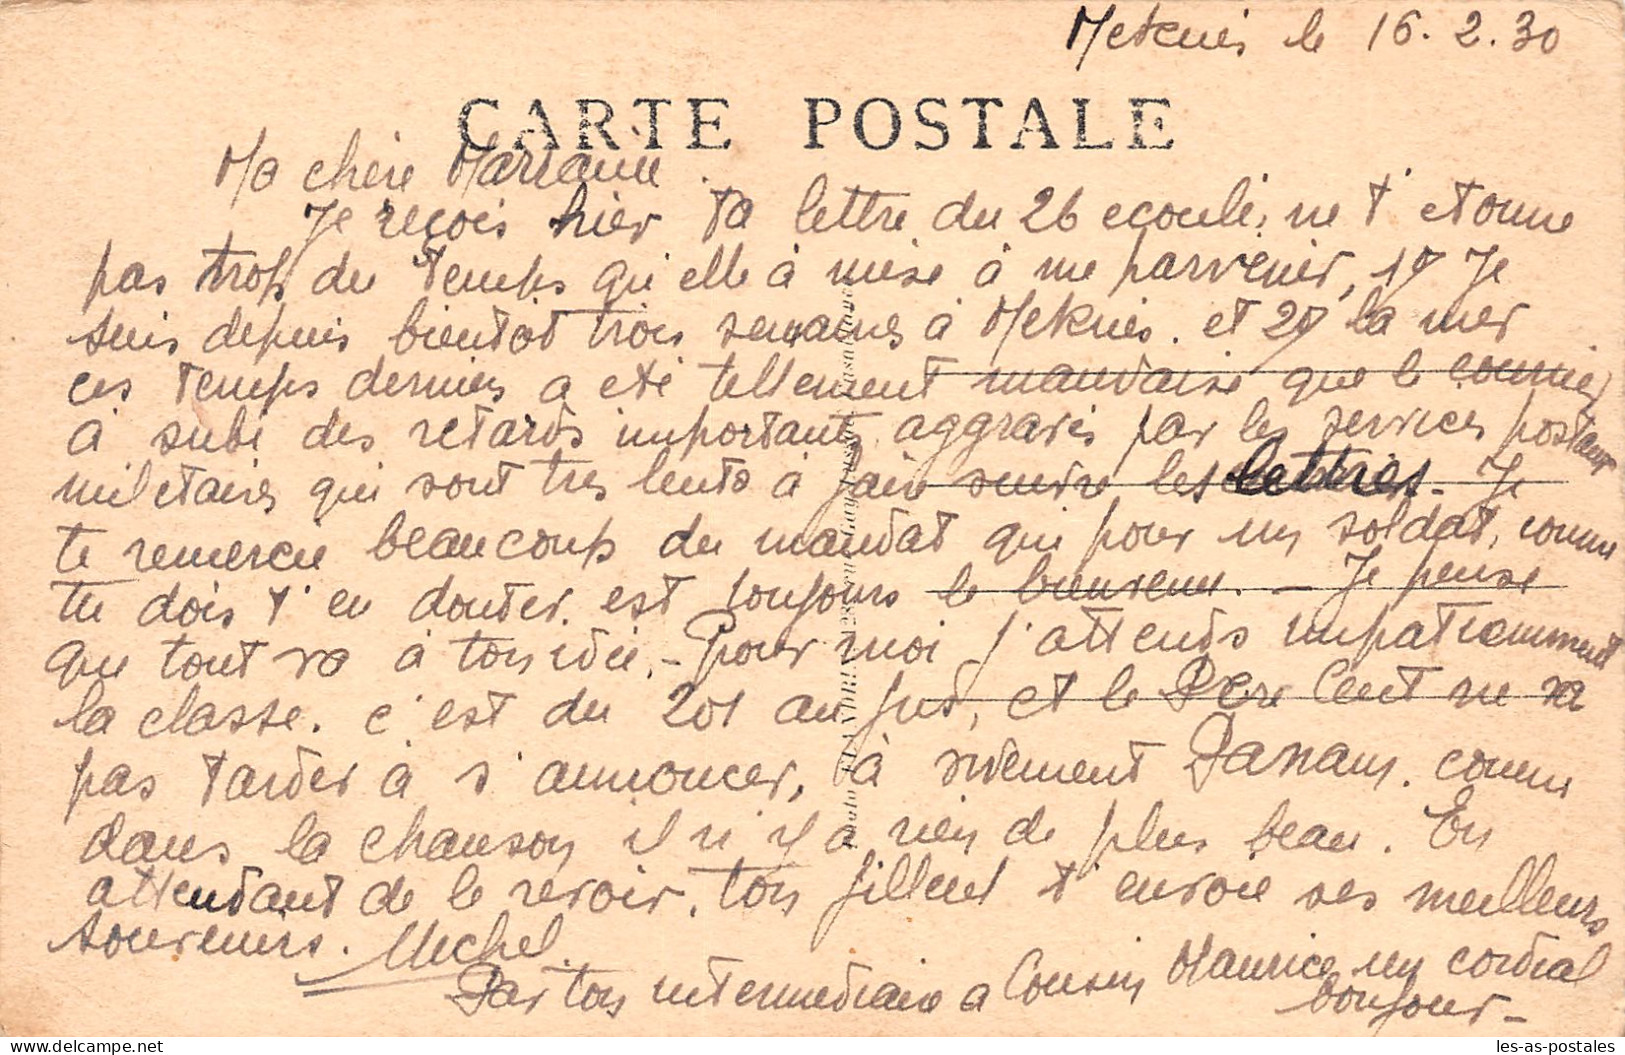 Meknès le 16.2.30
CARTE POSTALE
Ma chère Marraine.
Je reçois hier ta lettre du 26 ecoulé, ne t'etonne
pas trop du temps qu'elle à mise à me parvenir, 1º Je
suis depuis bientot trois semaines à Meknès. et 2º la mer
ces temps derniers a été tellement mauvaise que le courrier
à subi des retards importants aggravés par les services postaux
militaires qui sont tres lents à faire suivre les lettres. Je
te remercie beaucoup du mandat qui pour un soldat, comme
tu dois t'en douter, est toujours le bienvenu. - Je pense
que tout va à ton idée. - Pour moi j'attends impatiemment
la classe. c'est du 201 au jus, et le Père Cent ne va
pas tarder à s'annoncer, à vivement Paname. comme
dans la chanson il n'y a rien de plus beau. En
attendant de le revoir, ton filleul t'envoie ses meilleurs
souvenirs. Michel.
Par ton intermediaire a Cousin Maurice un cordial
bonjour -
les-as-postales